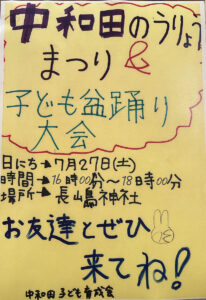 中和田のうりょう
まつり&
子ども盆踊り
大会
日にち→7月27日(土)
時間→16時00分~18時00分
場所→長山島神社
お友達とぜひ
来てね!
中和田子ども育成会